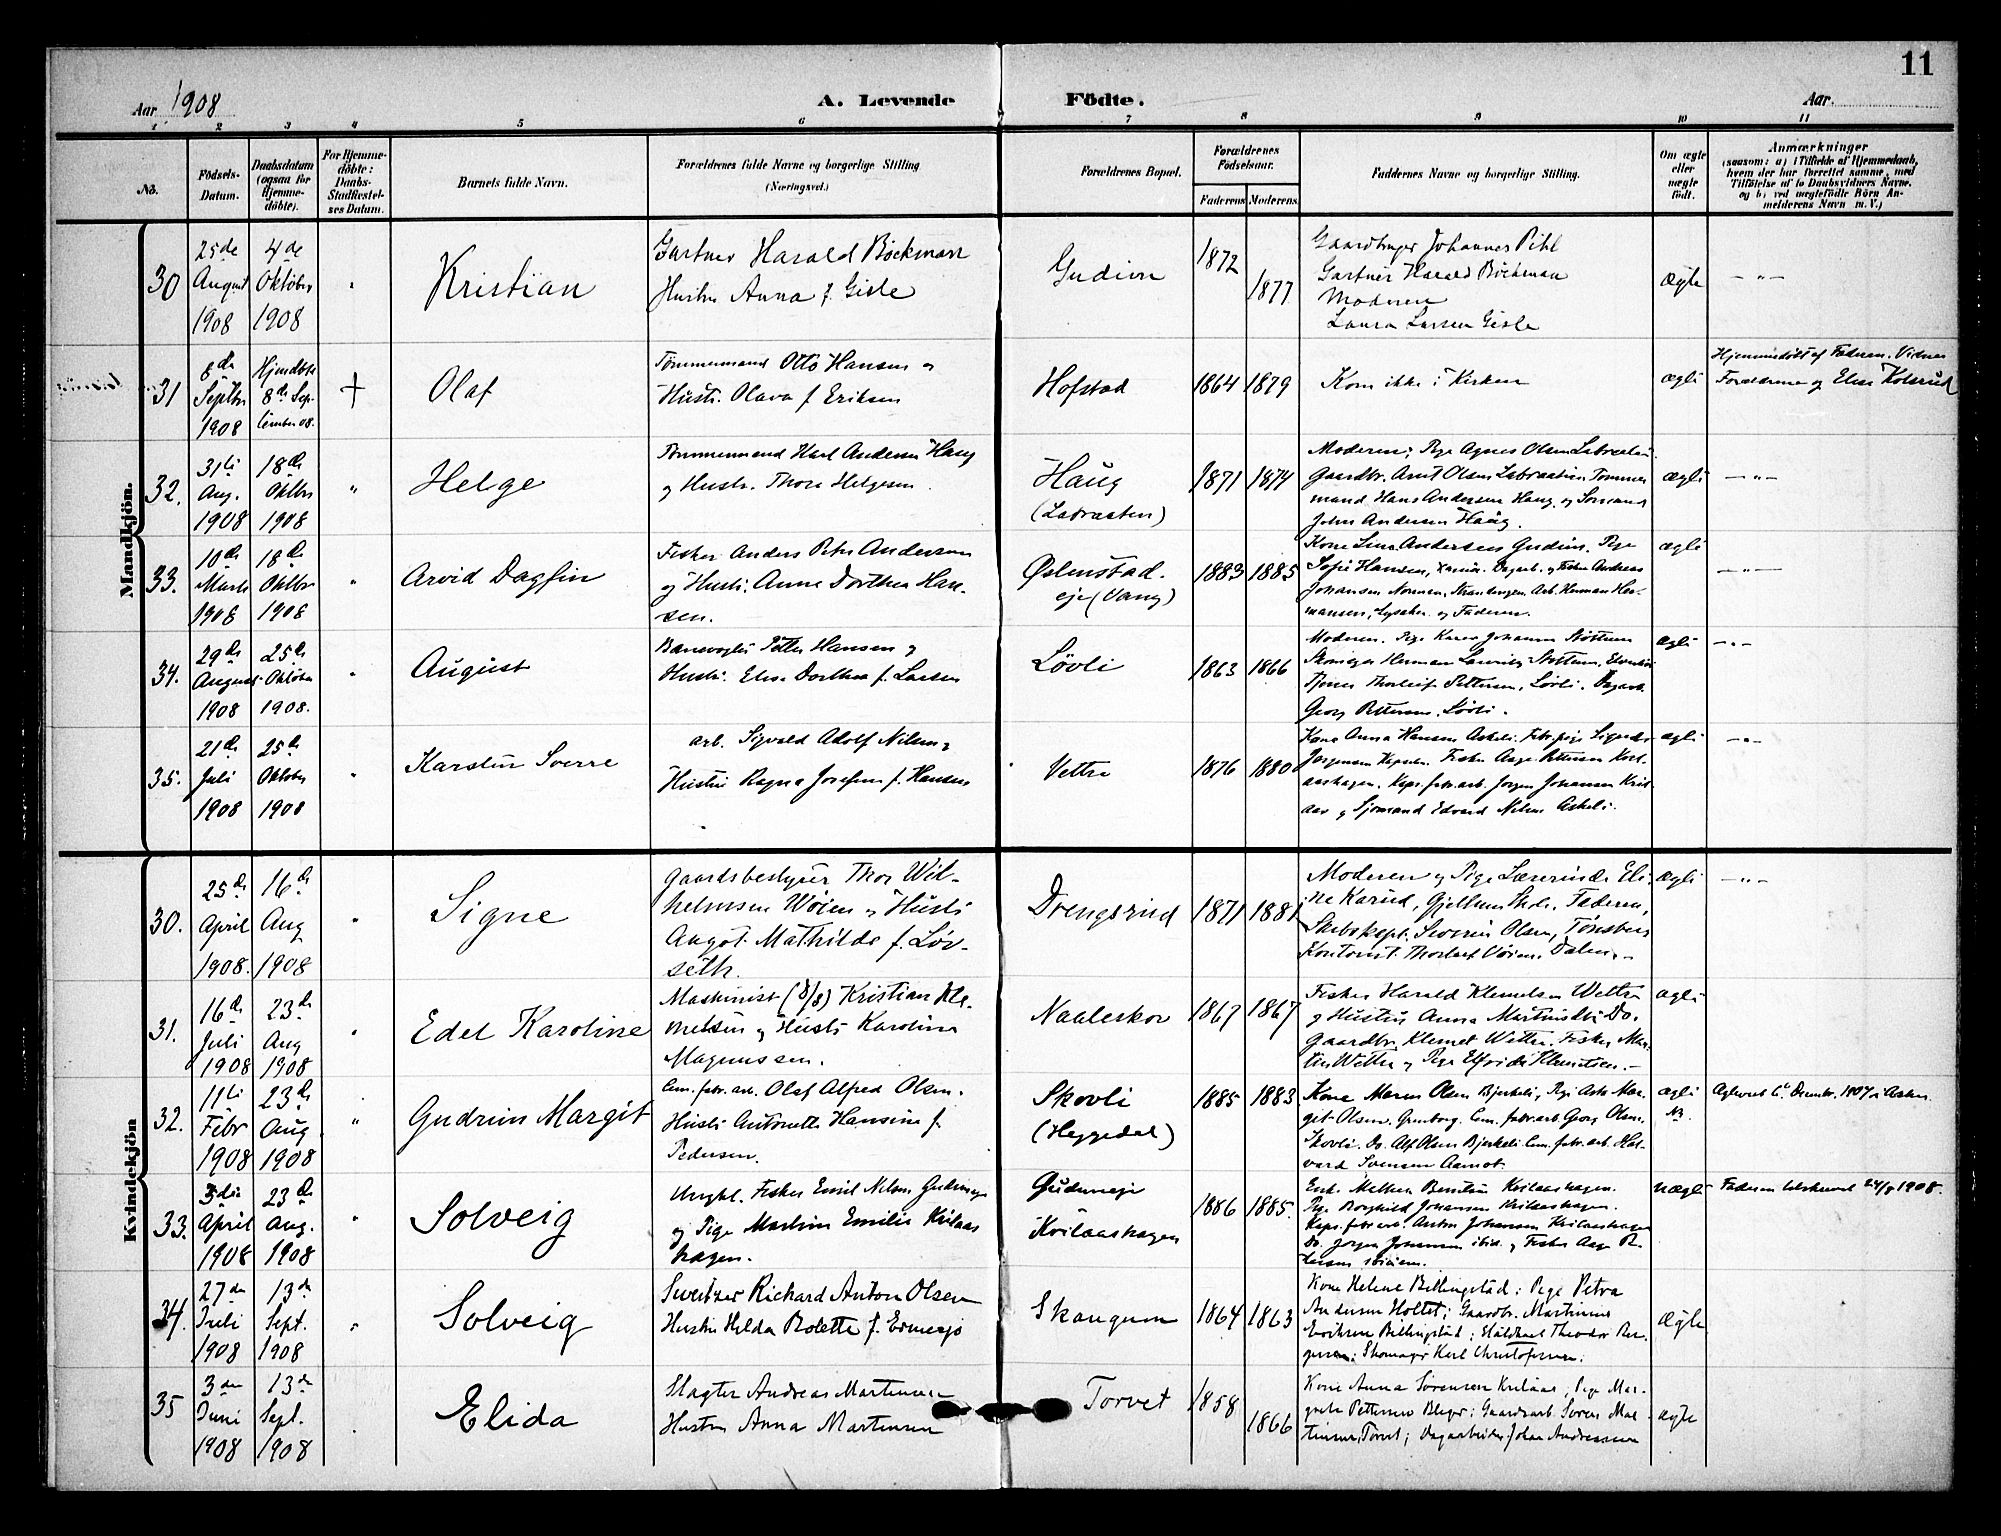 11
Aar 1908
A. Levende Födte.
Aar.
1 2 3 4 5 6 7 8 9 10 11
No.
Födsels-
Datum.
Daabsdatum
(ogsaa for
Hjemme-
döbte).
For Hjemme-
döbte:
Daabs-
Stadfæstel-
ses Datum.
Barnets fulde Navn.
Forældrenes fulde Navne og borgerlige Stilling
(Næringsvei.)
Forældrenes Bopæl.
Forældrenes
Födselsaar.
Faderens Moderens
Faddernes Navne og borgerlige Stilling.
Om ægte
eller
uægte
födt.
Anmærkninger
(saasom: a) i Tilfælde af Hjemmedaab,
hvem der har forrettet samme, med
Tilföielse af to Daabsvidners Navne,
og b) ved uægtefödte Börn An-
melderens Navn m. V.)
Mandkjön.
30
25de
August
1908
4de
Oktober
1908
Kristian
Gartner Harald Böckman
Hustru Anna f. Gisle
Gudim
1872
1877
Gaardbruger Johannes Pihl
Gartner Harald Böckman
Moderen
Laura Larsen Gisle
Ægte
31
8de
Septbr
1908
Hjemdöbt
8de Sep-
tember 08.
+
Olaf
Tømmermand Otto Hansen og
Hustr. Olava f. Eriksen
Hofstad
1864 1879
Kom ikke i Kirken
ægte
Hjemmedöbt af Faderen. Vidner
Forældrene og Elise Kolsrud
32.
31te
Aug.
1908
18de
Oktbr
1908
Helge
Tømmermand Karl Andersen Haug
og Hustr. Thora Helgesen
Haug
(Labraaten)
1871 1874
Moderen; Pige Agnes Olsen Labraaten
Gaardbr. Olsen Labraaten Tømmer
mand Hans Andersen Haug og Sömand
John Andersen Haug.
ægte
33.
10de
Marts
1908
18de
Oktbr
1908
Arvid Dagfin
Fisker Anders Peter Andersen
og Hustr. Anne Dorthea Han-
sen.
Østenstad.
eje (Vang)
1883 1885
Kone Lina Andersen Gudim. Pige
Sofie Hansen, og Fisker Andreas
Johansen Arb. Herman Her-
mansen, Lysaker og Faderen.
ægte
34.
29de
August
1908
25de
Oktober
1908.
August
Banevogter Petter Hansen og
Hustr. Elise Dorthea f. Larsen
Lövli
1863 1866
Moderen. Pige Karen Johanne Støttum
Skomager Herman Støttum,
Tjener Thorleif Pettersen, Løvli. Dagarb.
Georg Pettersen, Lövli.
ægte
35.
21de
Juli
1908
25de
Oktober
1908
Karsten Sverre
arb. Sigvald Adolf Nilsen og
Hustru Ragna Josefine f. Hansen
Vettre
1876 1880
Kone Anna Hansen Askeli. Fabr.pige Signe
Jørgensen Fisker Aage Pettersen
Kaps.fabr.arb. Jørgen Johansen
og Sjømand Edvard Nilsen Askeli.
ægte
Kvindekjön
30.
25de
April
1908.
16de
Aug
1908
Signe
Gaardsbestyrer Thor Wil-
helmsen Wøien og Hustr.
Angot Mathilde f. Løv-
seth.
Drengsrud
1871 1881
Moderen og Pige Lærerinde Eli-
ne Karud, Gjellum Skole. Faderen,
Skibskapt. Severin Olsen, Tønsberg
Kontorist Thorleif Vøien, Dalen.
ægte
31.
16de
Juli
1908
23de
Aug
1908
Edel Karoline
Maskinist (d/s) Kristian Kle-
metsen og Hustr. Karoline
Magnussen.
Naaleskov
1867 1867
Fisker Harald Klemetsen Wettre
og Hustru Anna Do.
Gaardbr. Klemet Wettre. Fisker Mar-
tin Wettre og Pige Elfrida Klemetsen.
ægte
32.
11te
Febr
1908
23de
Aug.
1908
Gudrun Margit
Cem.fabr.arb. Olaf Alfred Olsen.
Hustr. Antonette Hansine f.
Pedersen.
Skovli
(Heggedal)
1885 1883
Kone Maren Olsen Bjerkeli, Pige Asta Mar-
get Olsen, Cem.fabr.arb Georg Olsen,
Skovli. Do. Alf Olsen Bjerkeli Cem.fabr.arb. Hal-
vard Svensen Aamot.
ægte
NB.
Ægteviet Decembr. 1907 i Asker.
33.
3die
April
1908
23de
Aug.
1908
Solveig
Ungkl. Fisker Emil Nilsen Gudimeje
og Pige Martine Emilie Kvilaas
hagen.
Gudimeje
Kvilaashagen
1886 1885.
Enk. Mathea Kvilaashagen.
Pige Borghild Johansen Kvilaashagen.
Kaps.fabr.arb. Anton Johansen Kvilaashagen
Do. Jørgen Johansen ibid. og Fisker Aage Pet-
tersen
uægte
Faderen 24/8 1908.
34.
27de
Juli
1908
13de
Sept.
1908
Solveig
Sweitzer Richard Anton Olsen
Hustru Hilda Bolette f. Ermesjø
Skaugum
1864 1863
Kone Helene Billingstad; Pige Petra
Andersen Holtet; Gaardbr. Martinius
Eriksen Billingstad; Staldkarl Theodor Ber-
gersen; Skomager Karl Christofersen.
Ægte
35
3de
Juni
1908
13de
Sept.
1908
Elida
Slagter Andreas Martinsen
Hustru Anna Martinsen
Torvet
1858
1866
Kone Anna Sørensen Kvilaas, Pige Mar-
grete Pettersen Gaardsarb. Søren Mar-
tinsen, Torvet; Dagarbeider Johan Andreassen
ægte